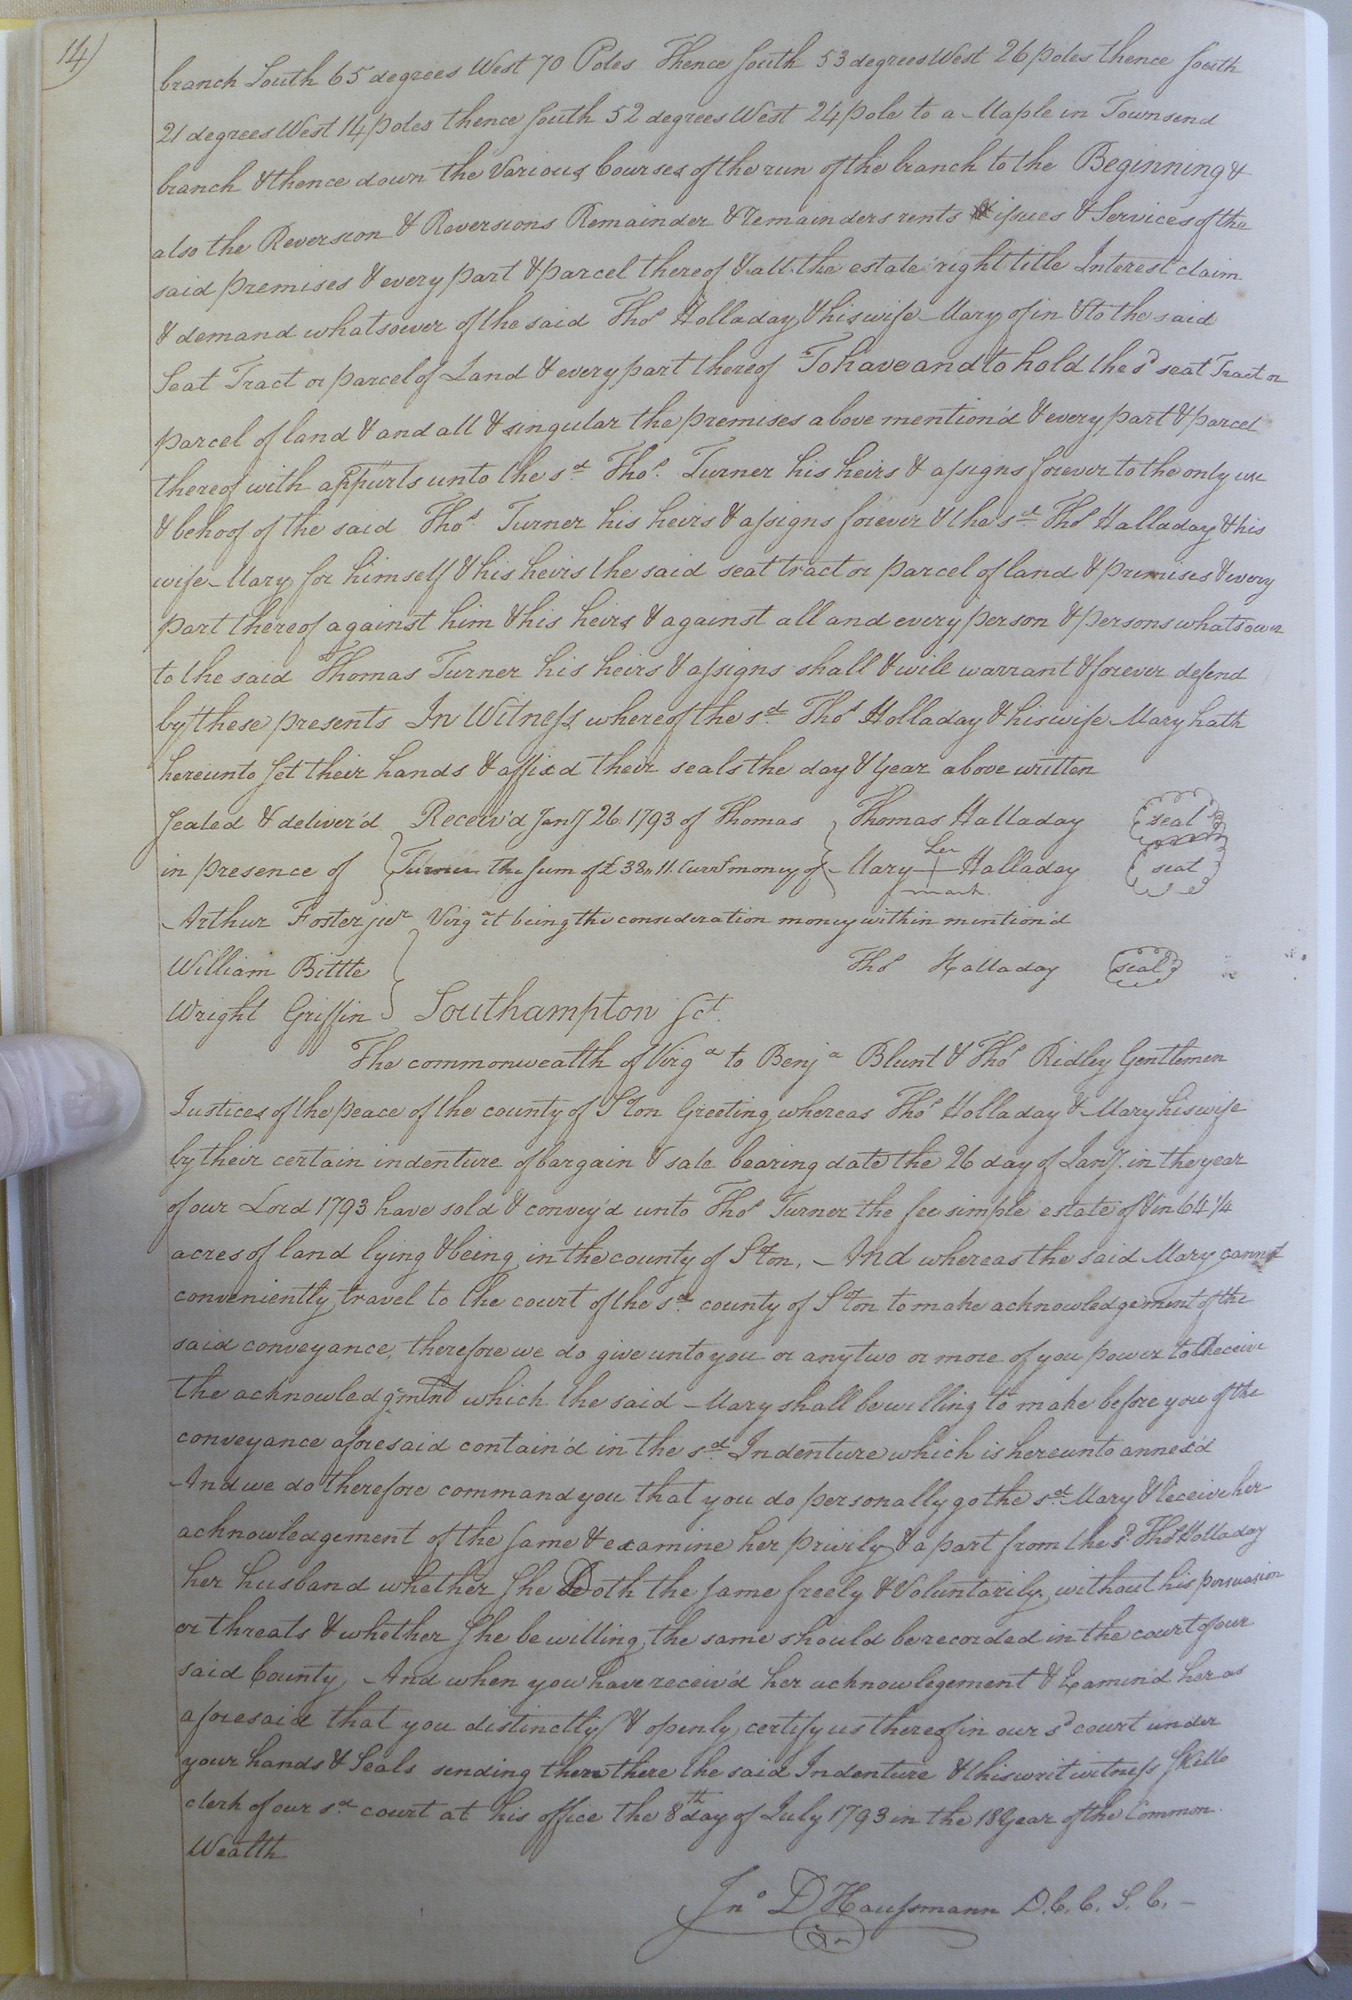 14)
branch South 65 degrees West 70 Poles Thence South 53 degrees West 26 poles thence South
21 degrees West 14 poles thence South 52 degrees West 24 pole to a Maple in Townsend
branch & thence down the Various Courses of the run of the branch to the Beginning &
also the Reversion & Reversions Remainder & remainders rents & issues & Services of the
said premises & every part & parcel thereof & all the estate right title Interest claim
& demand whatsoever of the said Thos Holladay & his wife Mary of in & to the said
Seat Tract or parcel of Land & every part thereof To have and to hold the sd seat Tract or
parcel of land & and all & singular the premises above mention'd & every part & parcel
thereof with appurts unto the sd Thos. Turner his heirs & assigns forever to the only use
& behoof of the said Thos. Turner his heirs & assigns forever & the sd Thos Halladay & his
wife Mary for himself & his heirs the said seat tract or parcel of land & premises & every
part thereof against him & his heirs & against all and every person & persons whatsoever
to the said Thomas Turner his heirs & assigns shall & will warrant & forever defend
by these presents In Witness whereof the sd Thos Holladay & his wife Mary hath
hereunto set their hands & affix'd their seals the day & year above written
Sealed & deliver'd Receiv'd Jany 26. 1793 of Thomas Thomas Halladay seal
in presence of Turner the sum of £ 38,,11. Currt money of Mary + Halladay seal
her
mark
Arthur Foster junr Virga it being the consideration money within mention'd
William Bittle Thos Halladay seal
Wright Griffin Southampton Sct.
The commonwealth of Virga to Benja Blunt & Thos Ridley Gentlemen
Justices of the peace of the county ofSton Greeting whereas Thos Holladay & Mary his wife
by their certain indenture of bargain & sale bearing date the 26 day of Jany. in the year
of our Lord 1793 have sold & convey'd unto Thos Turner the fee simple estate of & in 64 1/4
acres of land lying & being in the county of Ston, And whereas the said Mary cannot
conveniently travel to the court of the sd county of Ston to make acknowledgement of the
said conveyance, therefore we do give unto you or any two or more of you power to Receive
the acknowledgment which the said Mary shall be willing to make before you of the
conveyance aforesaid contain'd in the sd Indenture which is hereunto annex'd
And we do therefore command you that you do personally go the sd Mary & receive her
acknowledgement of the same & examine her privily & apart from the sd Thos Holladay
her husband whether she Doth the same freely & Voluntarily, without his persuasion
or threats & whether she be willing the same should be recorded in the court of our
said County, And when you have receiv'd her acknowlegement & Examin'd her as
aforesaid that you distinctly & openly certify us thereof in our sd court under
your hands & Seals sending then there the said Indenture & this writ witness SKello
clerk of our sd court at his office the 8th day of July 1793 in the 18 year of the Common
Wealth
Jno D Haussmann D.C.C.S.C.